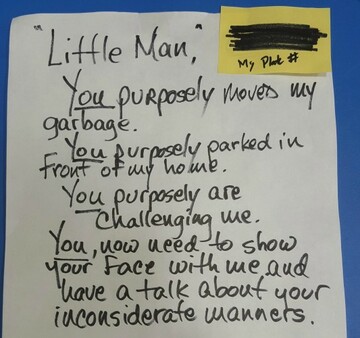 "Little Man,"
My Phone #
You purposely moved my
garbage.
You purposely parked in
front of my home.
You purposely are
challenging me.
You, now need to show
your face with me and
have a talk about your
inconsiderate manners.